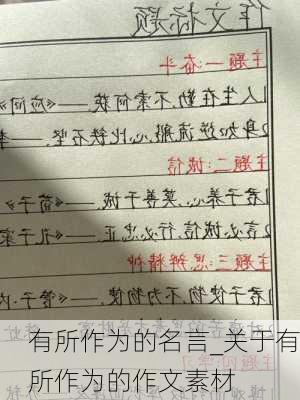 作文标题
主题一:奋斗
人生在勤,不索何获.——《应间》
2.身如逆流船,心比铁石坚.——李
主题二:诚信
1.君子养心,莫善于诚.——《荀子》
2.言必诚信,行必忠正.——《孔子家
主题三:思辨精神
1.君子使物,不为物使.——《管子·内
有所作为的名言_关于有
所作为的作文素材